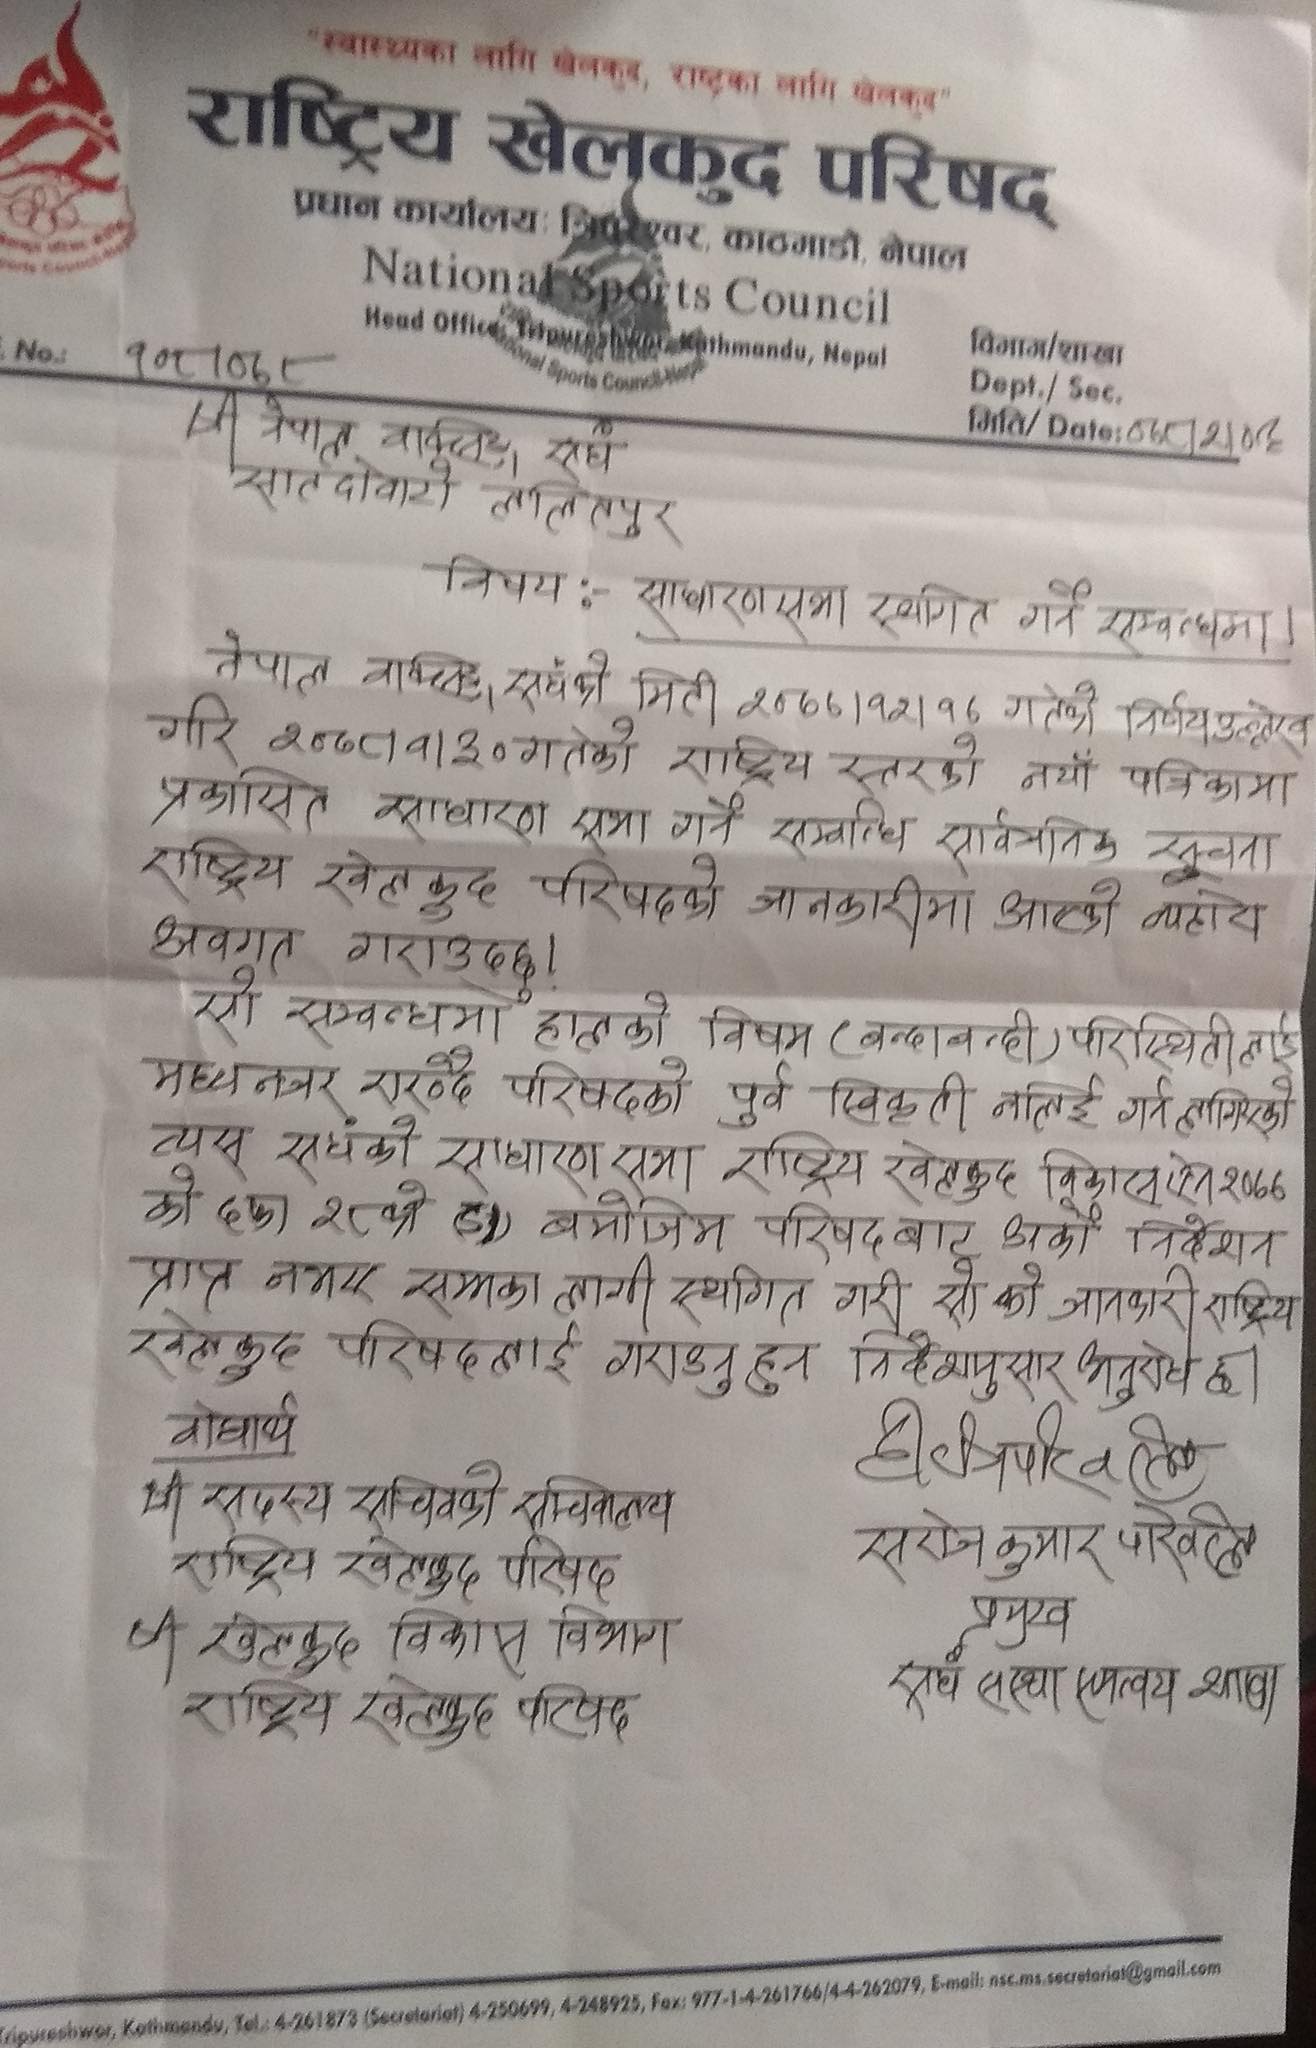 "स्वास्थ्यका लागि खेलकुद, राष्ट्रका लागि खेलकुद"
राष्ट्रिय खेलकुद परिषद्
प्रधान कार्यालय: त्रिपुरेश्वर, काठमाडौं, नेपाल
National Sports Council
Head Office: Tripureshwor, Kathmandu, Nepal
National Sports Council-Nepal
विभाग/शाखा
Dept./ Sec.
No.:
मिति/ Date: ०७८।२।०६
श्री नेपाल बाक्सिङ्ग संघ
सातदोबाटो ललितपुर
विषय :- साधारण सभा स्थगित गर्ने सम्बन्धमा।
नेपाल बाक्सिङ्ग संघको मिती २०७७।१२।१६ गतेको निर्णय उल्लेख
गरि २०७८।१।३० गतेको राष्ट्रिय स्तरको नयाँ पत्रिकामा
प्रकासित साधारण सभा गर्ने सम्बन्धि सार्वजनिक सूचना
राष्ट्रिय खेलकुद परिषदको जानकारीमा आएको व्यहोरा
अवगत गराउदछु।
सो सम्बन्धमा हालको विषम (बन्दाबन्दी) परिस्थितीलाई
मध्यनजर राख्दै परिषदको पुर्व स्विकृती नलिई गर्न लागिएको
त्यस संघको साधारण सभा राष्ट्रिय खेलकुद विकास ऐन २०७७
को दफा २८ को बमोजिम परिषदबाट अर्को निर्देशन
प्राप्त नभए सम्मका लागी स्थगित गरी सो को जानकारी राष्ट्रिय
खेलकुद परिषदलाई गराउनु हुन निर्देशानुसार अनुरोध छ।
बोधार्थ
श्री सदस्य सचिवको सचिवालय
राष्ट्रिय खेलकुद परिषद
श्री खेलकुद विकास विभाग
राष्ट्रिय खेलकुद परिषद
सरोज कुमार
प्रमुख
संघ संस्था समन्वय शाखा
Tripureshwor, Kathmandu, Tel.: 4-261873 (Secretariat) 4-250699, 4-248925, Fax: 977-1-4-261766/4-4-262079, E-mail: nsc.ms.secretariat@gmail.com